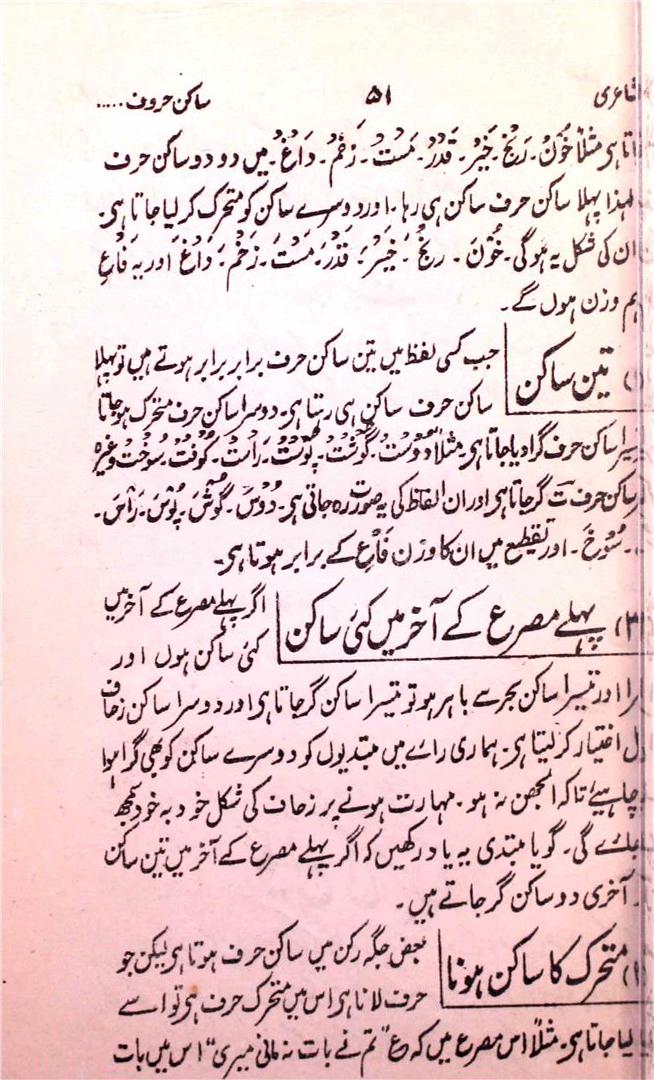 شاعری ۵۱ ساکن حروف.....
جاتا ہی مثلاً خُوْنْ۔ رَنْجْ۔ خَیْرْ۔ قَدْرْ۔ مَسْتْ۔ زَخْمْ۔ دَاغْ۔ میں دو دو ساکن حرف
لہذا پہلا ساکن حرف ساکن ہی رہا۔ اور دوسرے ساکن کو متحرک کر لیا جاتا ہی۔
ان کی شکل یہ ہوگی۔ خُوْنَ۔ رَنْجَ۔ خَیْرَ۔ قَدْرَ۔ مَسْتَ۔ زَخْمَ۔ دَاغَ اور یہ فَاعِ
ہم وزن ہوں گے۔
تین ساکن
جب کسی لفظ میں تین ساکن حرف برابر برابر ہوتے ہیں تو پہلا
ساکن حرف ساکن ہی رہتا ہی۔ دوسرا ساکن حرف متحرک ہوجاتا
تیسرا ساکن حرف گرا دیا جاتا ہی۔ مثلاً دُوْسْتْ۔ گُوْشْتْ۔ پُوْسْتْ۔ رَاسْتْ۔ کُوْفْتْ۔ سُوْخْتْ وغیرہ
ساکن حرف ت گر جاتا ہی اور ان الفاظ کی یہ صورت رہ جاتی ہی۔ دُوْسَ۔ گُوْشَ۔ پُوْسَ۔ رَاسَ۔
سُوْخَ۔ اور تقطیع میں ان کا وزن فَاعِ کے برابر ہوتا ہی۔
(۳) پہلے مصرع کے آخر میں کئی ساکن
اگر پہلے مصرع کے آخر میں
کئی ساکن ہوں اور
اور تیسرا ساکن بحر سے باہر ہو تو تیسرا ساکن گر جاتا ہی اور دوسرا ساکن زحاف
اختیار کر لیتا ہی۔ ہماری رائے میں مبتدیوں کو دوسرے ساکن کو بھی گرا ہوا
چاہیئے تاکہ الجھن نہ ہو۔ مہارت ہونے پر زحاف کی شکل خود بہ خود سمجھ
جائے گی۔ گویا مبتدی یہ یاد رکھیں کہ اگر پہلے مصرع کے آخر میں تین ساکن
آخری دو ساکن گر جاتے ہیں۔
متحرک کا ساکن ہونا
بعض جگہ رکن میں ساکن حرف ہوتا ہی لیکن جو
حرف لانا ہی اس میں متحرک حرف ہی تو اسے
لیا جاتا ہی۔ مثلاً اس مصرع میں کہ ع "تم نے بات نہ مانی میری" اس میں بات